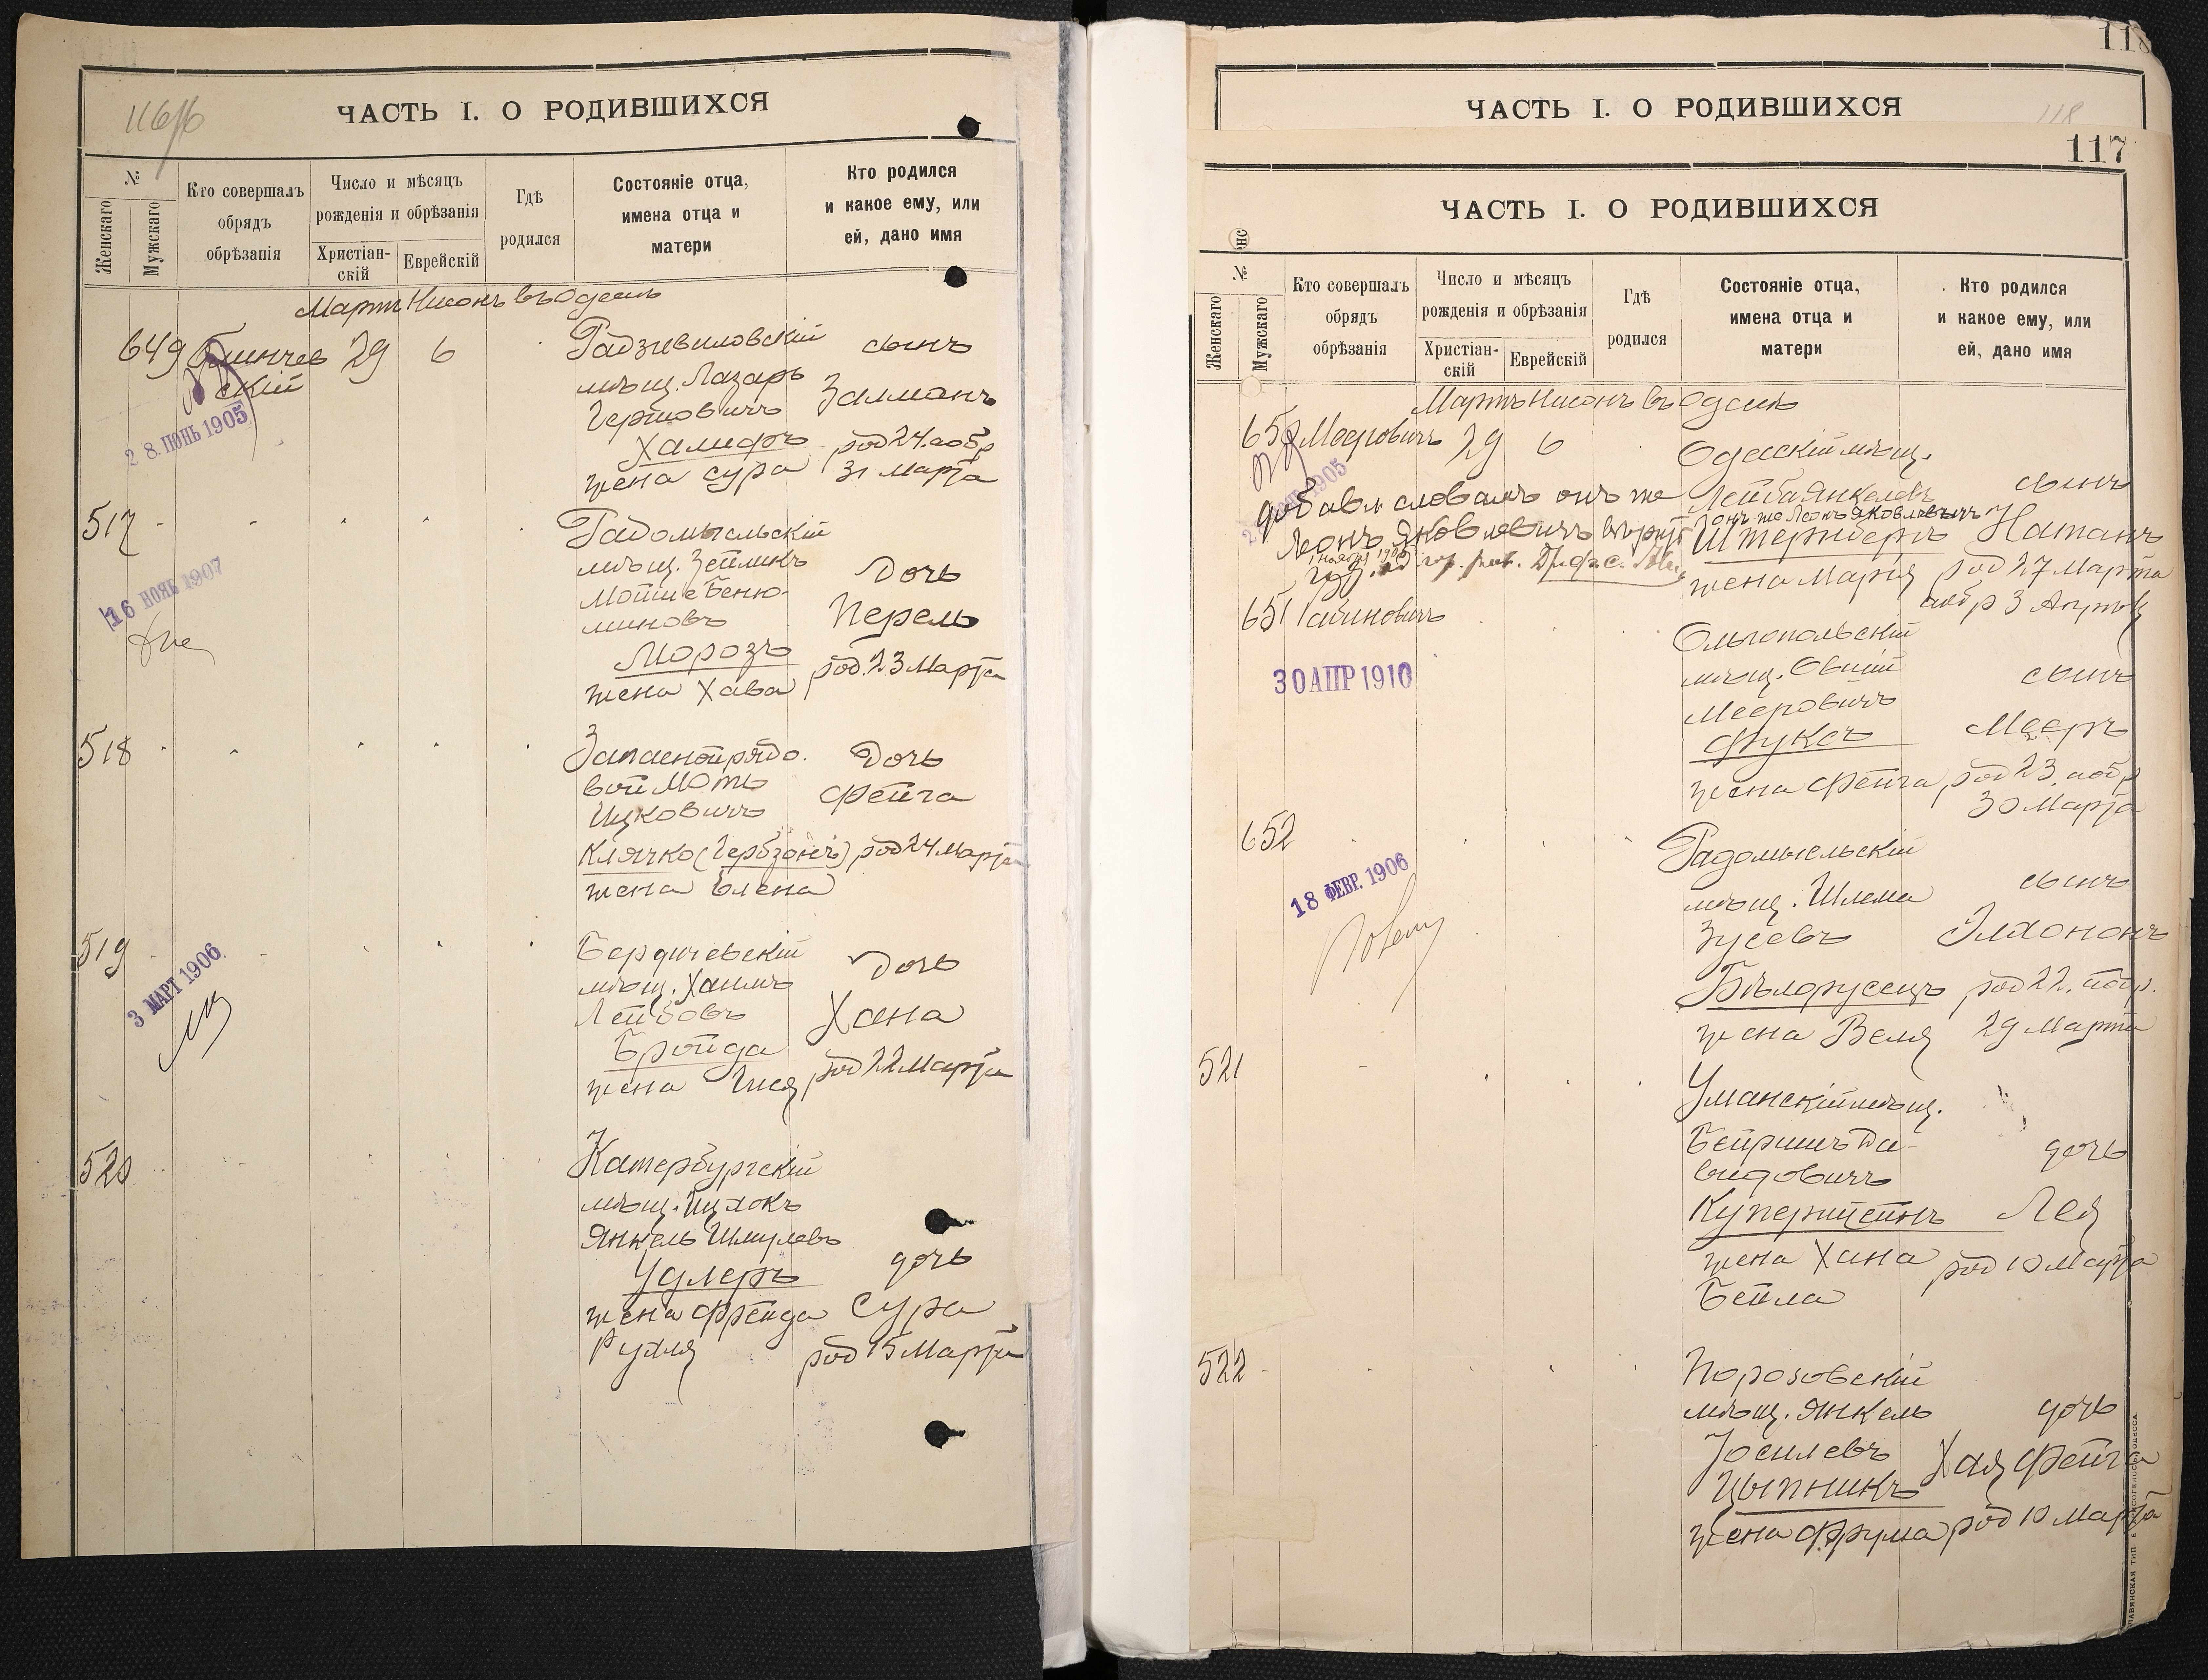 116об
ЧАСТЬ I. О РОДИВШИХСЯ
№
Женскаго
Мужскаго
Кто совершалъ
обрядъ
обрѣзанія
Число и мѣсяцъ
рожденія и обрѣзанія
Христіан-
скій
Еврейскій
Гдѣ
родился
Состояніе отца,
имена отца и
матери
Кто родился
и какое ему, или
ей, дано имя
Мартъ Нисонъ въ Одессѣ
649
скій
29
6
28. ІЮНЬ 1905
Радзивиловскій
мѣщ. Лазарь
Гершовичъ
Халифъ
жена Сура
сынъ
Залманъ
род 24. а обр
31 Марта
517
16 НОЯБ 1907
Радомысльскій
мѣщ. Зейликъ
Мойше Беню-
миновъ
Морозъ
жена Хава
Дочь
Перель
род. 23 Марта
518
Запасной рядо.
вой Моть
Ицковичъ
Клячко (Гербзонъ)
жена Елена
Дочь
Фейга
род 24 Марта
519
3 МАРТ 1906
Бердичевскій
мѣщ. Хаимъ
Лейбовъ
Бройда
жена Гися
Дочь
Хана
род 22 Марта
520
Катербургскій
мѣщ. Ицхокъ
Янкель Шмулевъ
Удлеръ
жена Фрейда
Рухля
дочь
Сура
род 15 Марта
118
ЧАСТЬ I. О РОДИВШИХСЯ
118
117
ЧАСТЬ I. О РОДИВШИХСЯ
№
Женскаго
Мужскаго
Кто совершалъ
обрядъ
обрѣзанія
Число и мѣсяцъ
рожденія и обрѣзанія
Христіан-
скій
Еврейскій
Гдѣ
родился
Состояніе отца,
имена отца и
матери
Кто родился
и какое ему, или
ей, дано имя
Мартъ Нисонъ въ Одессѣ
650
Мееровичъ
29
6
1905
добавл словамъ онъ же
Леонъ Яковлевичъ вѣрно
Одесскій мѣщ.
Лейба Янкелевъ
онъ же Леонъ Яковлевичъ
Штернбергъ
жена Марія
сынъ
Натанъ
род 27 Марта
а обр 3 Апрѣл
651
Рабиновичъ
30 АПР 1910
Ольгопольскій
мѣщ. Овшій
Мееровичъ
Фуксъ
жена Фейга
сынъ
Мееръ
род 23. а обр
30 Марта
652
18 ФЕВР. 1906
Радомысльскій
мѣщ. Шлема
Зусевъ
Бѣлорусецъ
жена Веля
сынъ
Элхононъ
род 22. а обр.
29 Марта
521
Уманскій мѣщ.
Бейришъ Да-
видовичъ
Куперштейнъ
жена Хана
Бейла
дочь
Лея
род 10 Марта
522
Порозовскій
мѣщ. Янкель
Іосилевъ
Цыпникъ
жена Фрума
дочь
Хая Фейга
род 10 Марта